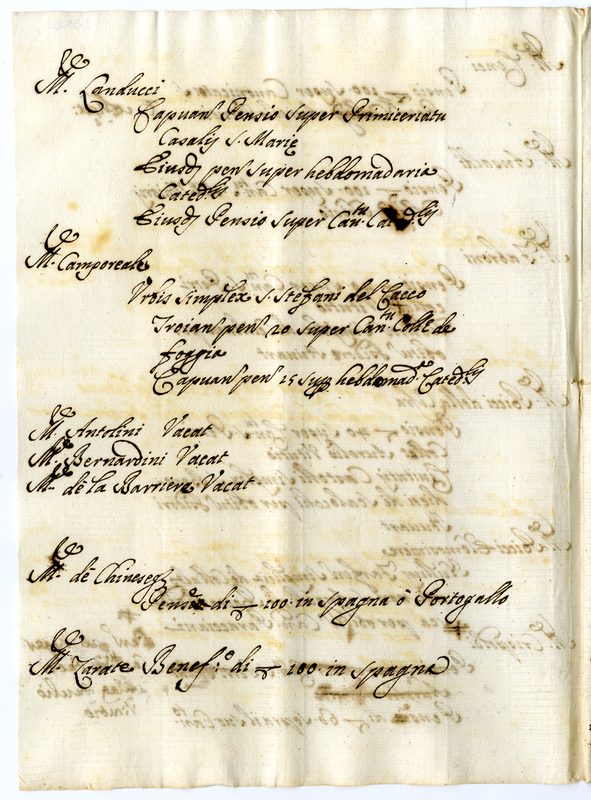 M.re Landucci
Capuan. Pensio super Primiceriatu
Casalis S. Marie
Eiusd. pen. super hebdomadaria
Cated.lis
Eiusd. Pensio super Can.tu Cated.lis
M.re Camporeale
Urbis simplex S. Stefani del Cacco
Troian. pen. 20 super Can.tu Colle. de
foggia
Capuan. pen. 25 sup. hebdomad.a Cated.lis
M.re Antolini Vacat
M.re Bernardini Vacat
M.re de la Barriera Vacat
M.re de
Pens.e di 100. in Spagna ò Portogallo
M.re Zarate Benef.o di 100. in Spagna